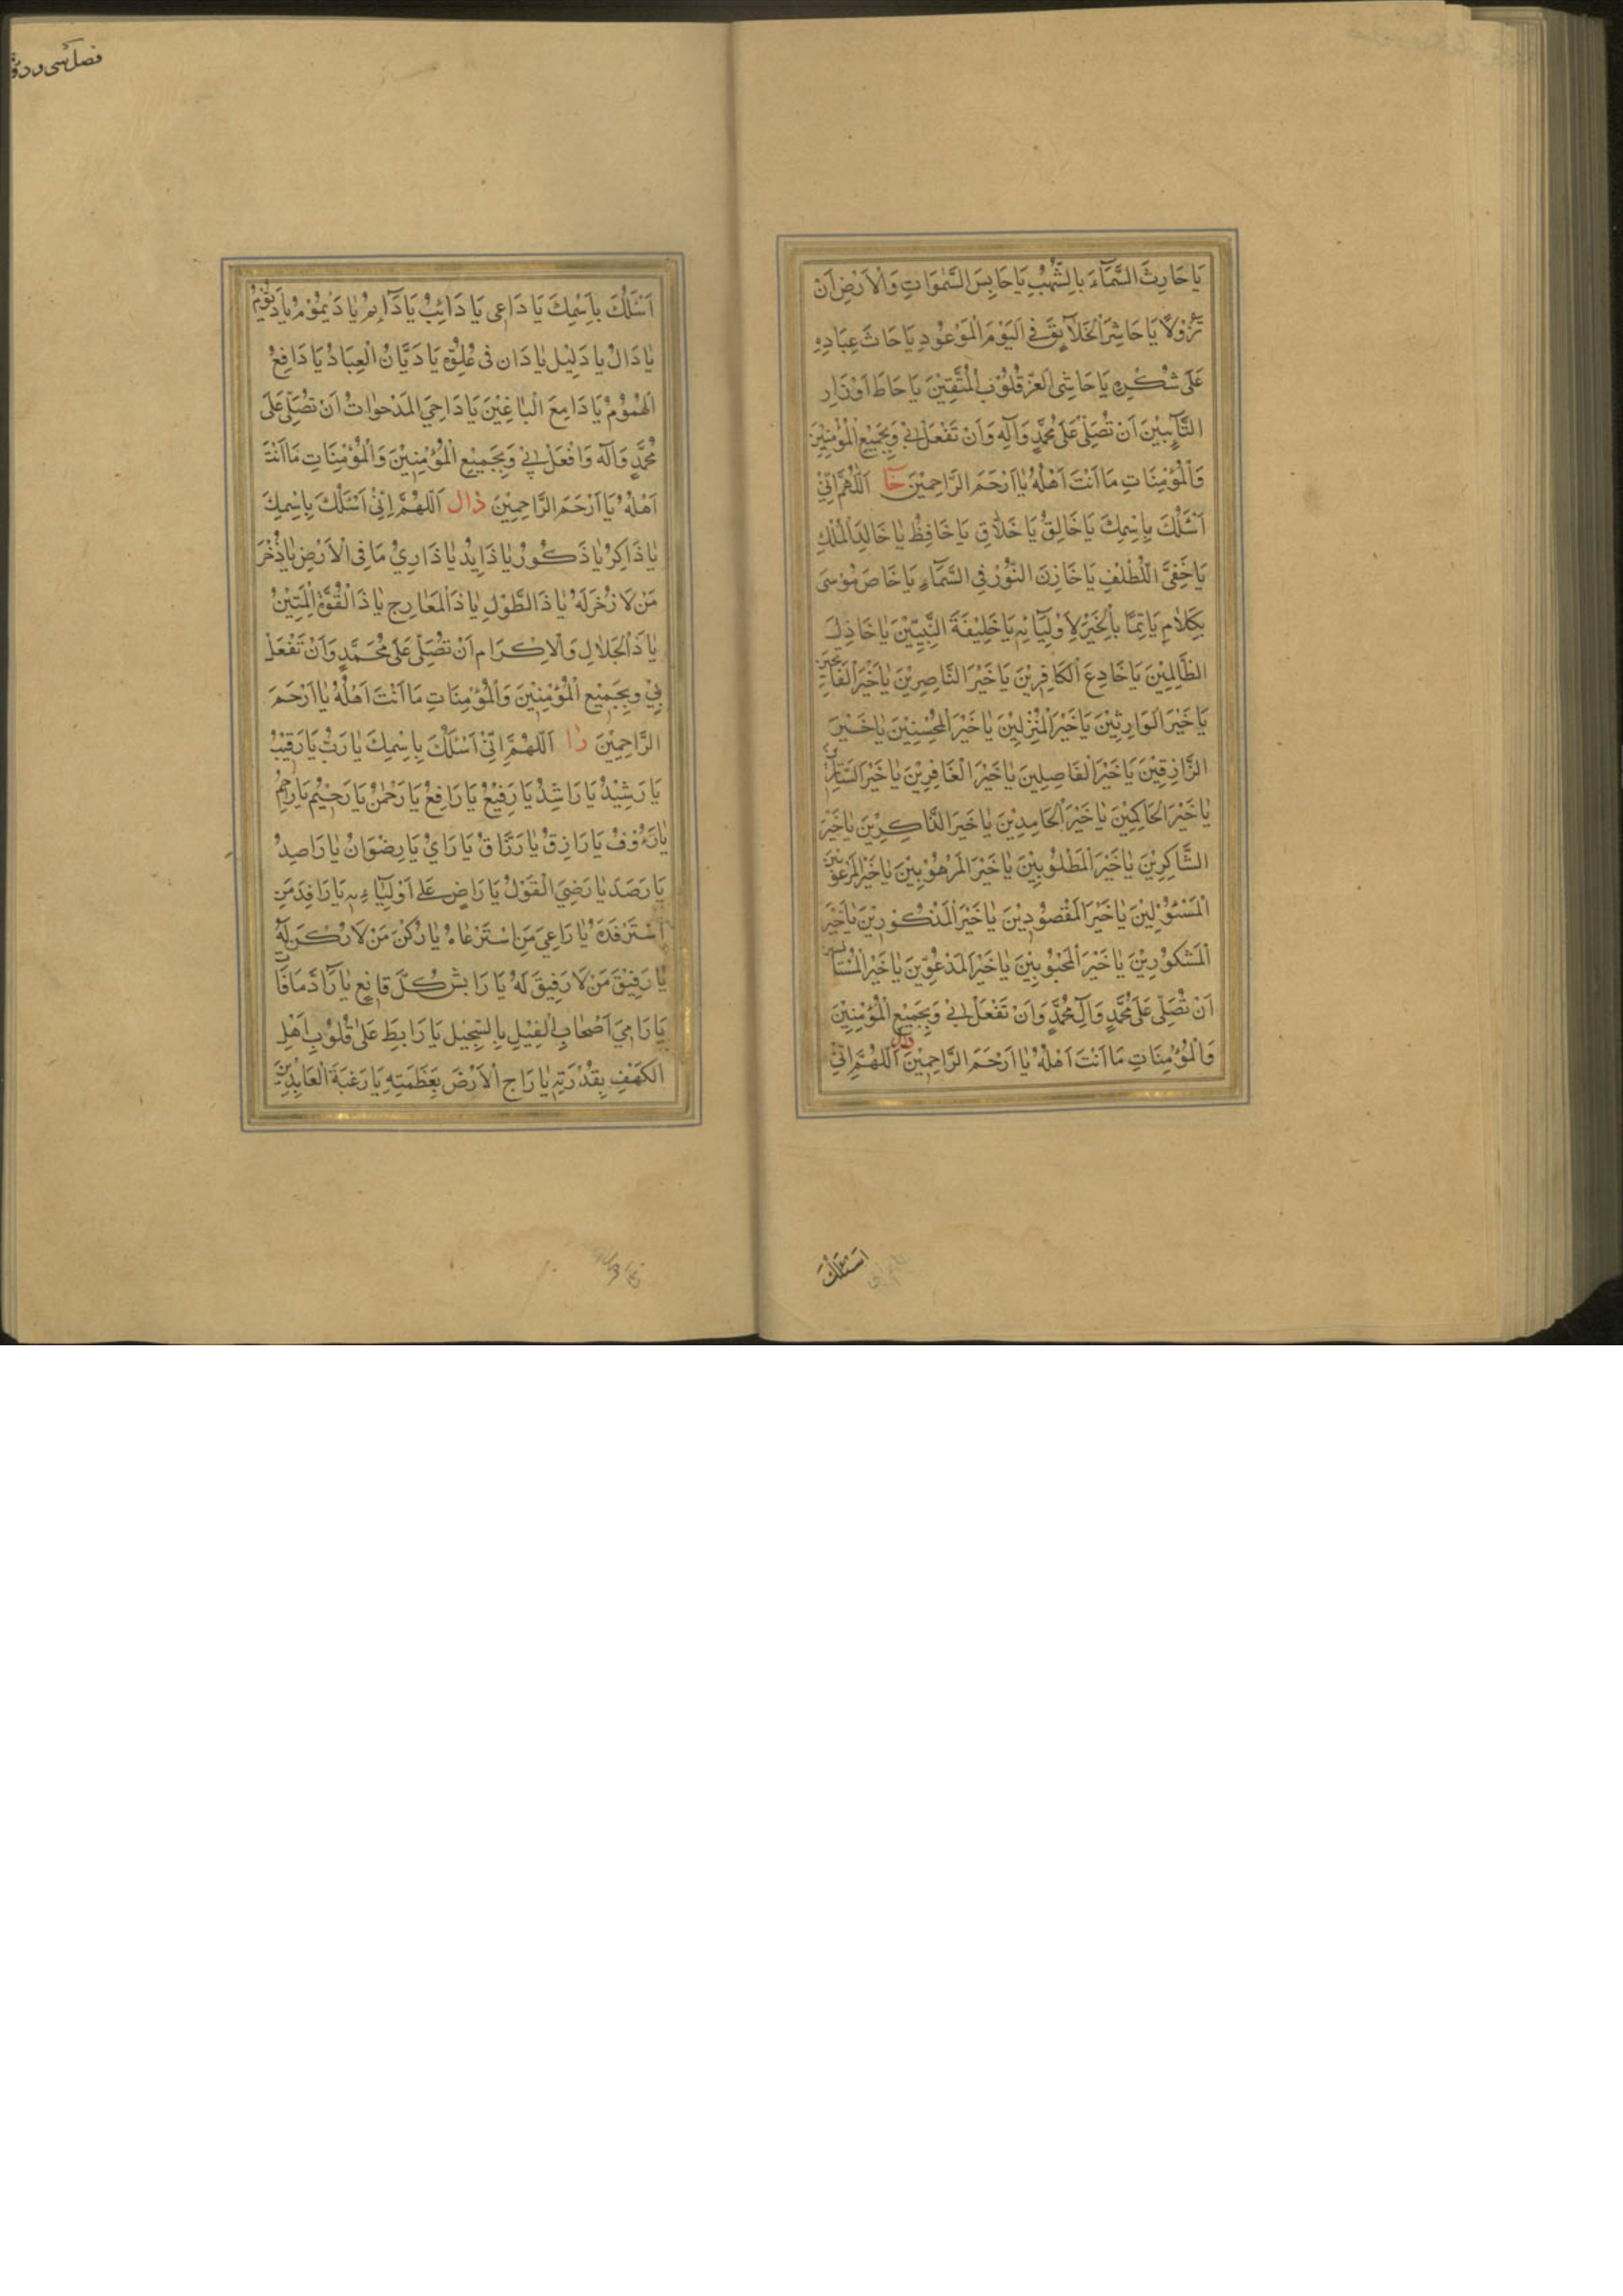 يَا حَارِثَ السَّمَآءِ بِالشُّهُبِ يَا حَابِسَ السَّمٰوَاتِ وَالْاَرْضِ اَنْ
تَزُوْلَا يَا حَاشِرَ الْخَلَآيِقِ فِى الْيَوْمِ الْمَوْعُوْدِ يَا حَاثَّ عِبَادِهِ
عَلٰى شُكْرِهِ يَا حَاشِى الْعِزِّ قُلُوْبِ الْمُتَّقِيْنَ يَا حَاطَّ اَوْزَارِ
التَّآيِبِيْنَ اَنْ تُصَلِّىَ عَلٰى مُحَمَّدٍ وَآلِهِ وَاَنْ تَفْعَلَ بِىْ وَبِجَمِيْعِ الْمُؤْمِنِيْنَ
وَالْمُؤْمِنَاتِ مَا اَنْتَ اَهْلُهُ يٰا اَرْحَمَ الرَّاحِمِيْنَ خا اَللّٰهُمَّ اِنِّىْ
اَسْئَلُكَ بِاِسْمِكَ يَا خَالِقُ يَا خَلَّاقُ يَا خَافِظُ يٰا خَالِدَ الْمُلْكِ
يَا خَفِىَّ اللُّطْفِ يَا خَازِنَ النُّوْرِ فِى السَّمَآءِ يَا خَاصَّ مُوْسٰى
بِكَلَامِ يَاتِمًا بِالْخَيْرِ لِاَوْلِيَآئِهِ يَا خَلِيْفَةَ النَّبِيِّيْنَ يَا خَاذِلَ
الظَّالِمِيْنَ يَا خَادِعَ الْكَافِرِيْنَ يَا خَيْرَ النَّاصِرِيْنَ يٰا خَيْرَ الْفَاتِحِيْنَ
يَا خَيْرَ الْوَارِثِيْنَ يَا خَيْرَ الْمُنْزِلِيْنَ يٰا خَيْرَ الْمُحْسِنِيْنَ يٰا خَيْرَ
الرَّازِقِيْنَ يَا خَيْرَ الْفَاصِلِيْنَ يٰا خَيْرَ الْغَافِرِيْنَ يٰا خَيْرَ السَّاتِرِيْنَ
يٰا خَيْرَ الْحَاكِمِيْنَ يٰا خَيْرَ الْحَامِدِيْنَ يٰا خَيْرَ الذَّاكِرِيْنَ يٰا خَيْرَ
الشَّاكِرِيْنَ يٰا خَيْرَ الْمَطْلُوْبِيْنَ يٰا خَيْرَ الْمَرْهُوْبِيْنَ يٰا خَيْرَ الْمَرْغُوْبِيْنَ
الْمَسْئُوْلِيْنَ يٰا خَيْرَ الْمَقْصُوْدِيْنَ يٰا خَيْرَ الْمَذْكُوْرِيْنَ يٰا خَيْرَ
الْمَشْكُوْرِيْنَ يٰا خَيْرَ الْمَحْبُوْبِيْنَ يٰا خَيْرَ الْمَدْعُوِّيْنَ يٰا خَيْرَ
اَنْ تُصَلِّىَ عَلٰى مُحَمَّدٍ وَآلِ مُحَمَّدٍ وَاَنْ تَفْعَلَ بِىْ وَبِجَمِيْعِ الْمُؤْمِنِيْنَ
وَالْمُؤْمِنَاتِ مَا اَنْتَ اَهْلُهُ يٰا اَرْحَمَ الرَّاحِمِيْنَ دال اَللّٰهُمَّ اِنِّىْ
اسئلك
فصل سى و
اَسْئَلُكَ بِاَسْمِكَ يَا دَاعِى يَا دَائِبُ يَا دَآئِمُ يٰا دَيْمُوْمُ يَا دَيُّوْمُ
يٰا دَالُّ يٰا دَلِيْلُ يٰا دَانٍ فِى عُلُوِّهِ يَا دَيَّانُ الْعِبَادِ يَا دَافِعَ
الْهُمُوْمِ يَا دَامِغَ الْبَاغِيْنَ يَا دَاحِىَ الْمَدْحُوَّاتِ اَنْ تُصَلِّىَ عَلٰى
مُحَمَّدٍ وَآلِهِ وَافْعَلْ بِىْ وَبِجَمِيْعِ الْمُؤْمِنِيْنَ وَالْمُؤْمِنَاتِ مَا اَنْتَ
اَهْلُهُ يَا اَرْحَمَ الرَّاحِمِيْنَ ذال اَللّٰهُمَّ اِنِّىْ اَسْئَلُكَ بِاِسْمِكَ
يٰا ذَاكِرُ يٰا ذَكُوْرُ يٰا ذَايِدُ يٰا ذَارِىْ مَا فِى الْاَرْضِ يٰا ذُخْرَ
مَنْ لَا ذُخْرَ لَهُ يٰا ذَا الطَّوْلِ يٰا ذَا الْمَعَارِجِ يٰا ذَا الْقُوَّةِ الْمَتِيْنُ
يٰا ذَا الْجَلَالِ وَالْاِكْرَامِ اَنْ تُصَلِّىَ عَلٰى مُحَمَّدٍ وَاَنْ تَفْعَلَ
بِىْ وَبِجَمِيْعِ الْمُؤْمِنِيْنَ وَالْمُؤْمِنَاتِ مَا اَنْتَ اَهْلُهُ يٰا اَرْحَمَ
الرَّاحِمِيْنَ را اَللّٰهُمَّ اِنِّىْ اَسْئَلُكَ بِاِسْمِكَ يٰا رَبُّ يَا رَقِيْبُ
يَا رَشِيْدُ يَا رَاشِدُ يَا رَفِيْعُ يَا رَافِعُ يَا رَحْمٰنُ يَا رَحِيْمُ يَا رَاحِمُ
يٰا رَءُوْفُ يَا رَازِقُ يٰا رَزَّاقُ يَا رَاىِ يَا رِضْوَانُ يٰا رَاصِدُ
يَا رَصَدُ يٰا رَضِىَّ الْقَوْلِ يَا رَاضٍ عَلٰى اَوْلِيَاءِهِ يَا رَافِدَ مَنِ
اسْتَرْفَدَهُ يٰا رَاعِىَ مَنِ اسْتَرْعَاهُ يٰا رُكْنَ مَنْ لَا رُكْنَ لَهُ
يٰا رَفِيْقَ مَنْ لَا رَفِيْقَ لَهُ يَا رَايِشَ كُلِّ قَانِعٍ يٰا رَآدَّ مَا فَاتَ
يَا رَامِىَ اَصْحَابِ الْفِيْلِ بِالسِّجِّيْلِ يَا رَابِطَ عَلٰى قُلُوْبِ اَهْلِ
الْكَهْفِ بِقُدْرَتِهِ يٰا رَاجَّ الْاَرْضِ بِعَظَمَتِهِ يَا رَغْبَةَ الْعَابِدِيْنَ